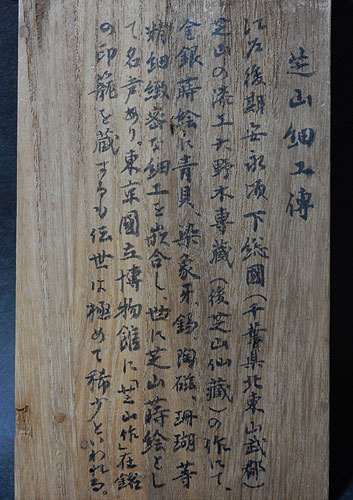 芝山細工傳
江戸後期安永頃下総國(千葉県北東山武郡)
芝山の漆工大野木専藏(後芝山仙藏)の作にて、
金銀蒔絵に青貝、染象牙錫陶磁珊瑚等
精細緻密な細工を嵌合し、世に芝山蒔絵とし
て名声あり。東京國立博物館に「芝山作」在銘
の印籠を蔵するも伝世は極めて稀少といわれる。